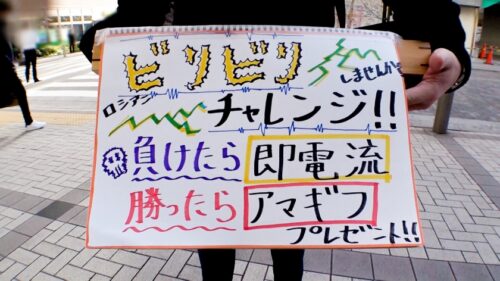 ビリビリ
しませんか?
ロシアン
チャレンジ!!
負けたら 即電流
勝ったら アマギフ
プレゼント!!